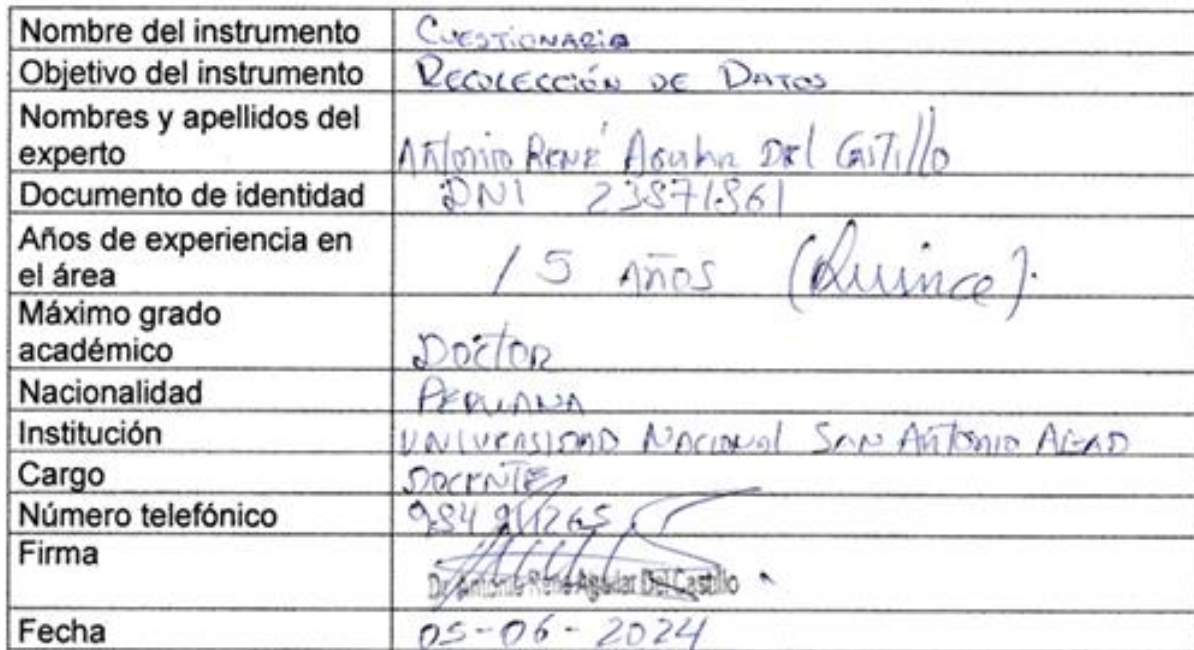 Nombre del instrumento CUESTIONARIO
Objetivo del instrumento RECOLECCIÓN DE DATOS
Nombres y apellidos del
experto ANTONIO RENÉ AGUILAR DEL CASTILLO
Documento de identidad DNI
Años de experiencia en
el área 15 AÑOS (Quince).
Máximo grado
académico DOCTOR
Nacionalidad PERUANA
Institución UNIVERSIDAD NACIONAL SAN ANTONIO ABAD
Cargo DOCENTE
Número telefónico
Firma
Dr. Antonio René Aguilar Del Castillo
Fecha 05-06-2024